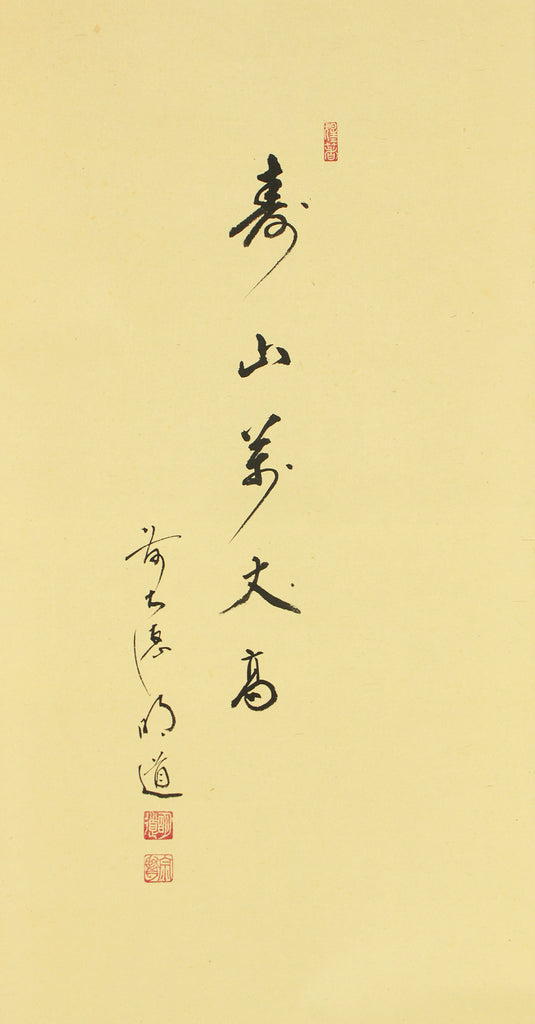 寿山萬丈高
前大德明道